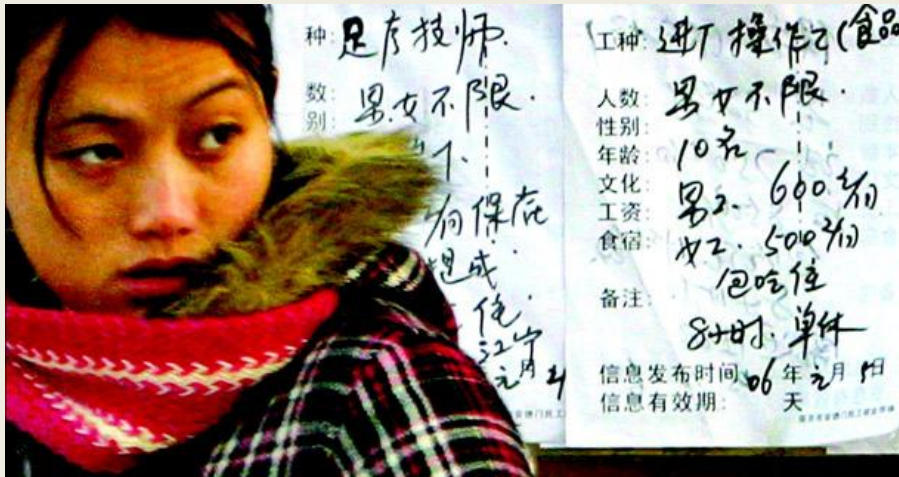 种: 足疗技师.
数: 男女不限.
别:
下.
有保底
提成
住
元月
工种: 进厂操作工(食品
人数: 男女不限.
性别:
年龄: 10名
文化:
工资: 男工. 600元/月
食宿: 女工. 500元/月
包吃住
备注:
8小时. 单休
信息发布时间 06年元月5日
信息有效期: 天